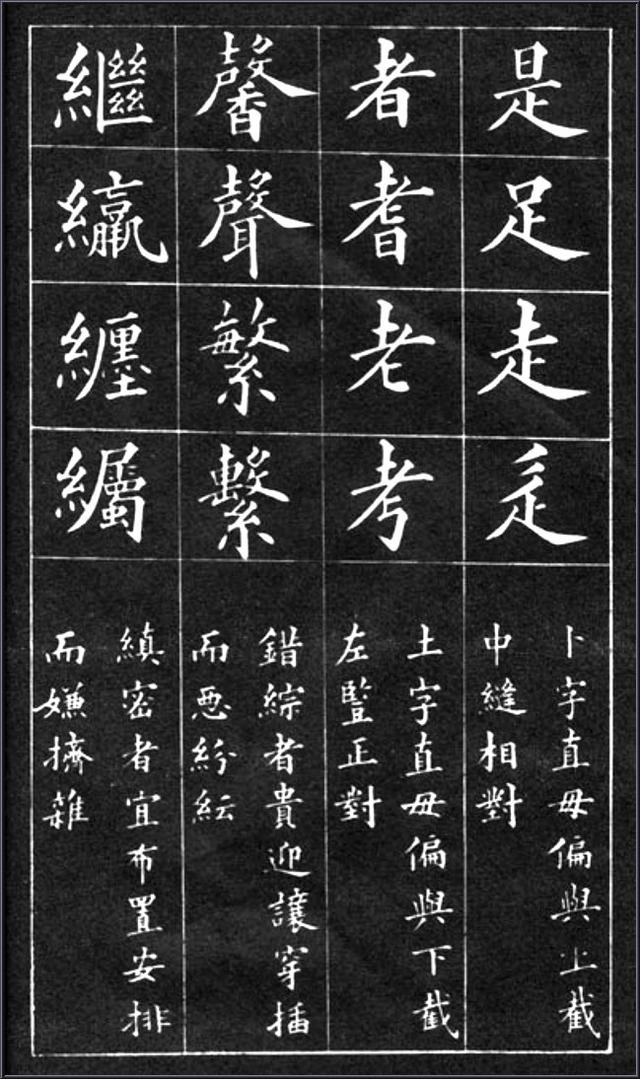 是足走辵
卜字直毋偏與上截
中縫相對
者耆老考
土字直毋偏與下截
左豎正對
馨聲繁繫
錯綜者貴迎讓穿插
而惡紛紜
繼䌴纒䌵
縝密者宜布置安排
而嫌擠雜